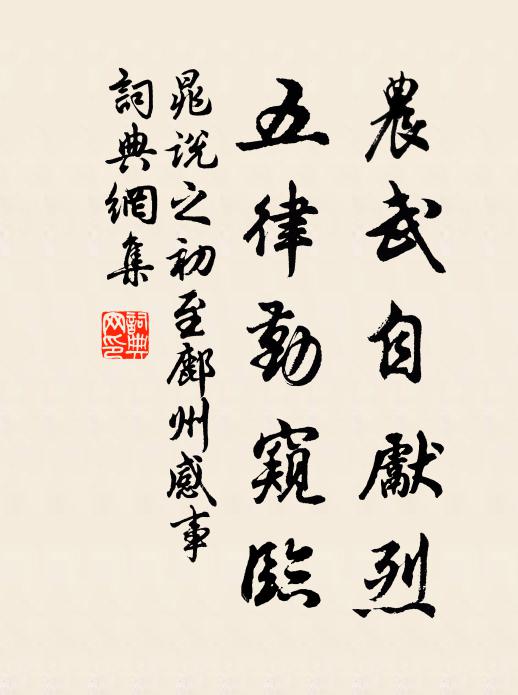 農武自獻烈
五律勤窺臨
晁說之初至鄜州感事
詞典網集
詞典網印